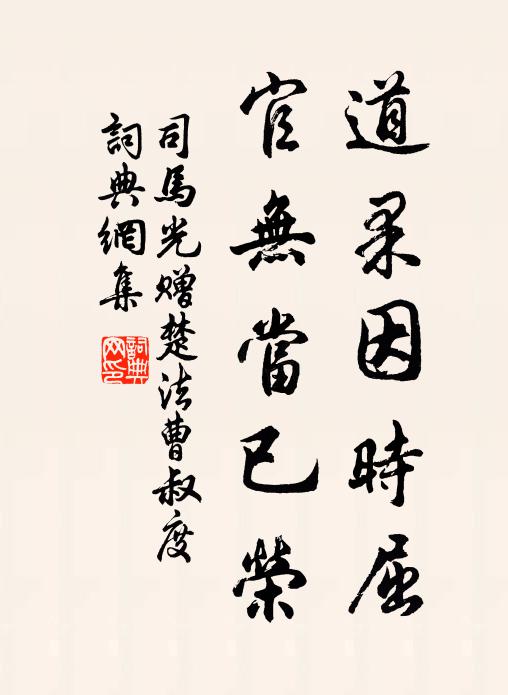 道柔因時屈
官無當已榮
司馬光贈楚法曹叔度
詞典網集
詞典网印